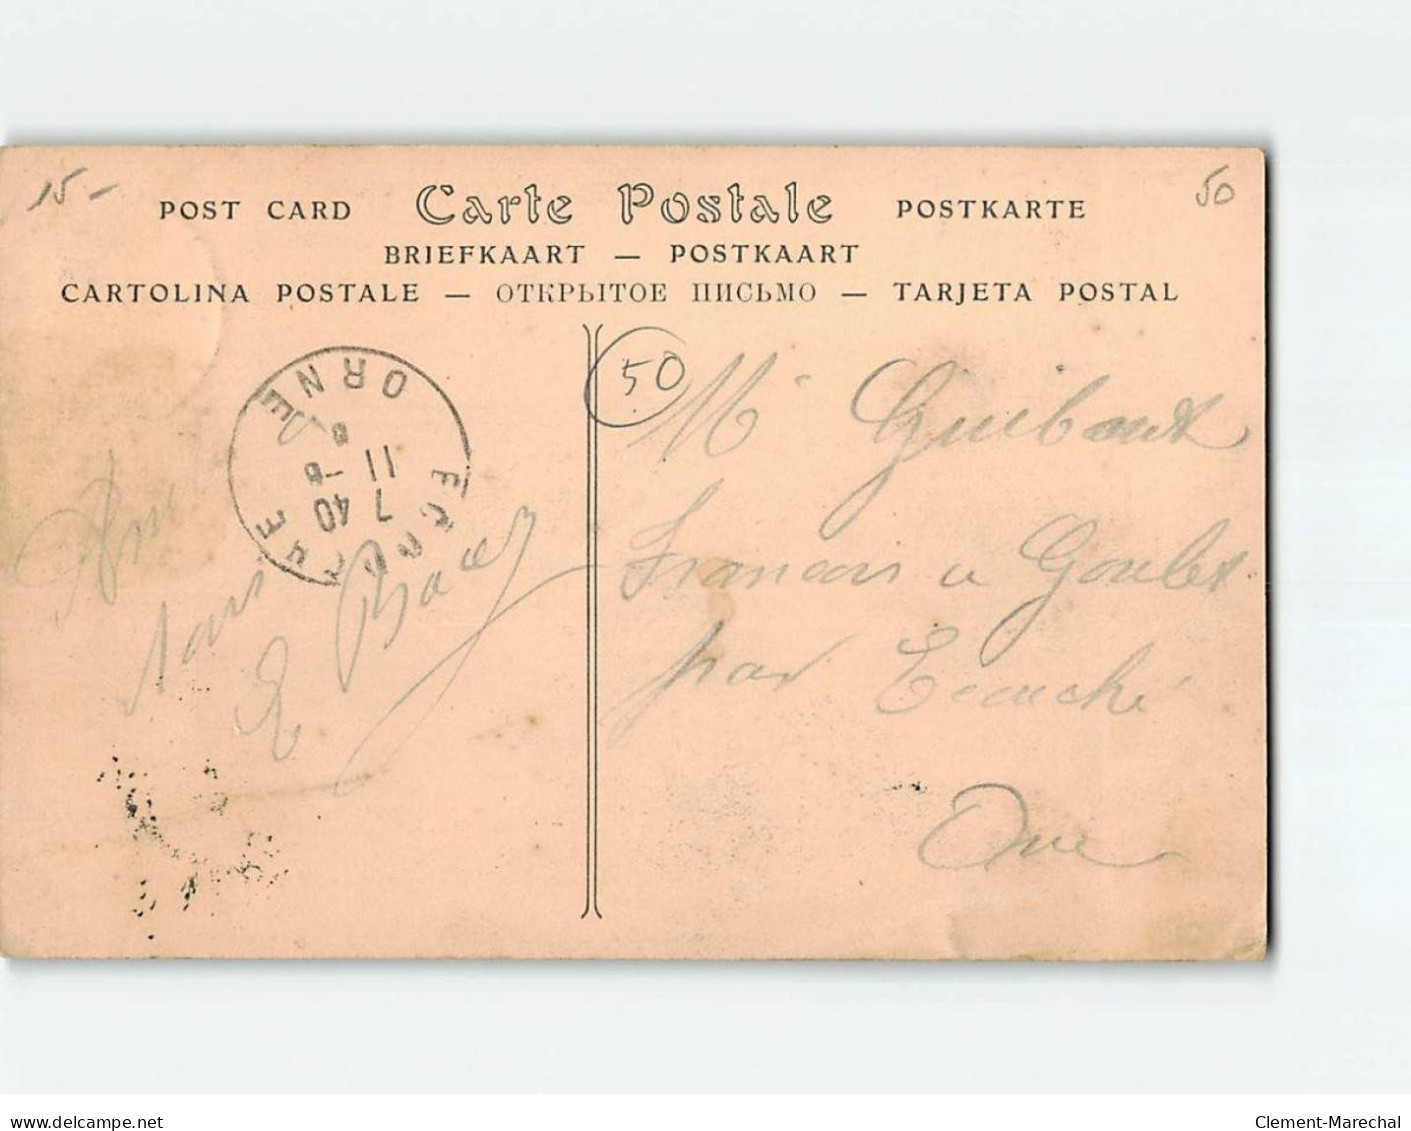 15-
50
POST CARD Carte Postale POSTKARTE
BRIEFKAART — POSTKAART
CARTOLINA POSTALE — ОТКРЫТОЕ ПИСЬМО — TARJETA POSTAL
50
ORNE
7 40
11 - 8
ECOUCHE
M Guibout
Francois a Goulet
par Ecouché
Orne
delcampe.net
Clement-Marechal